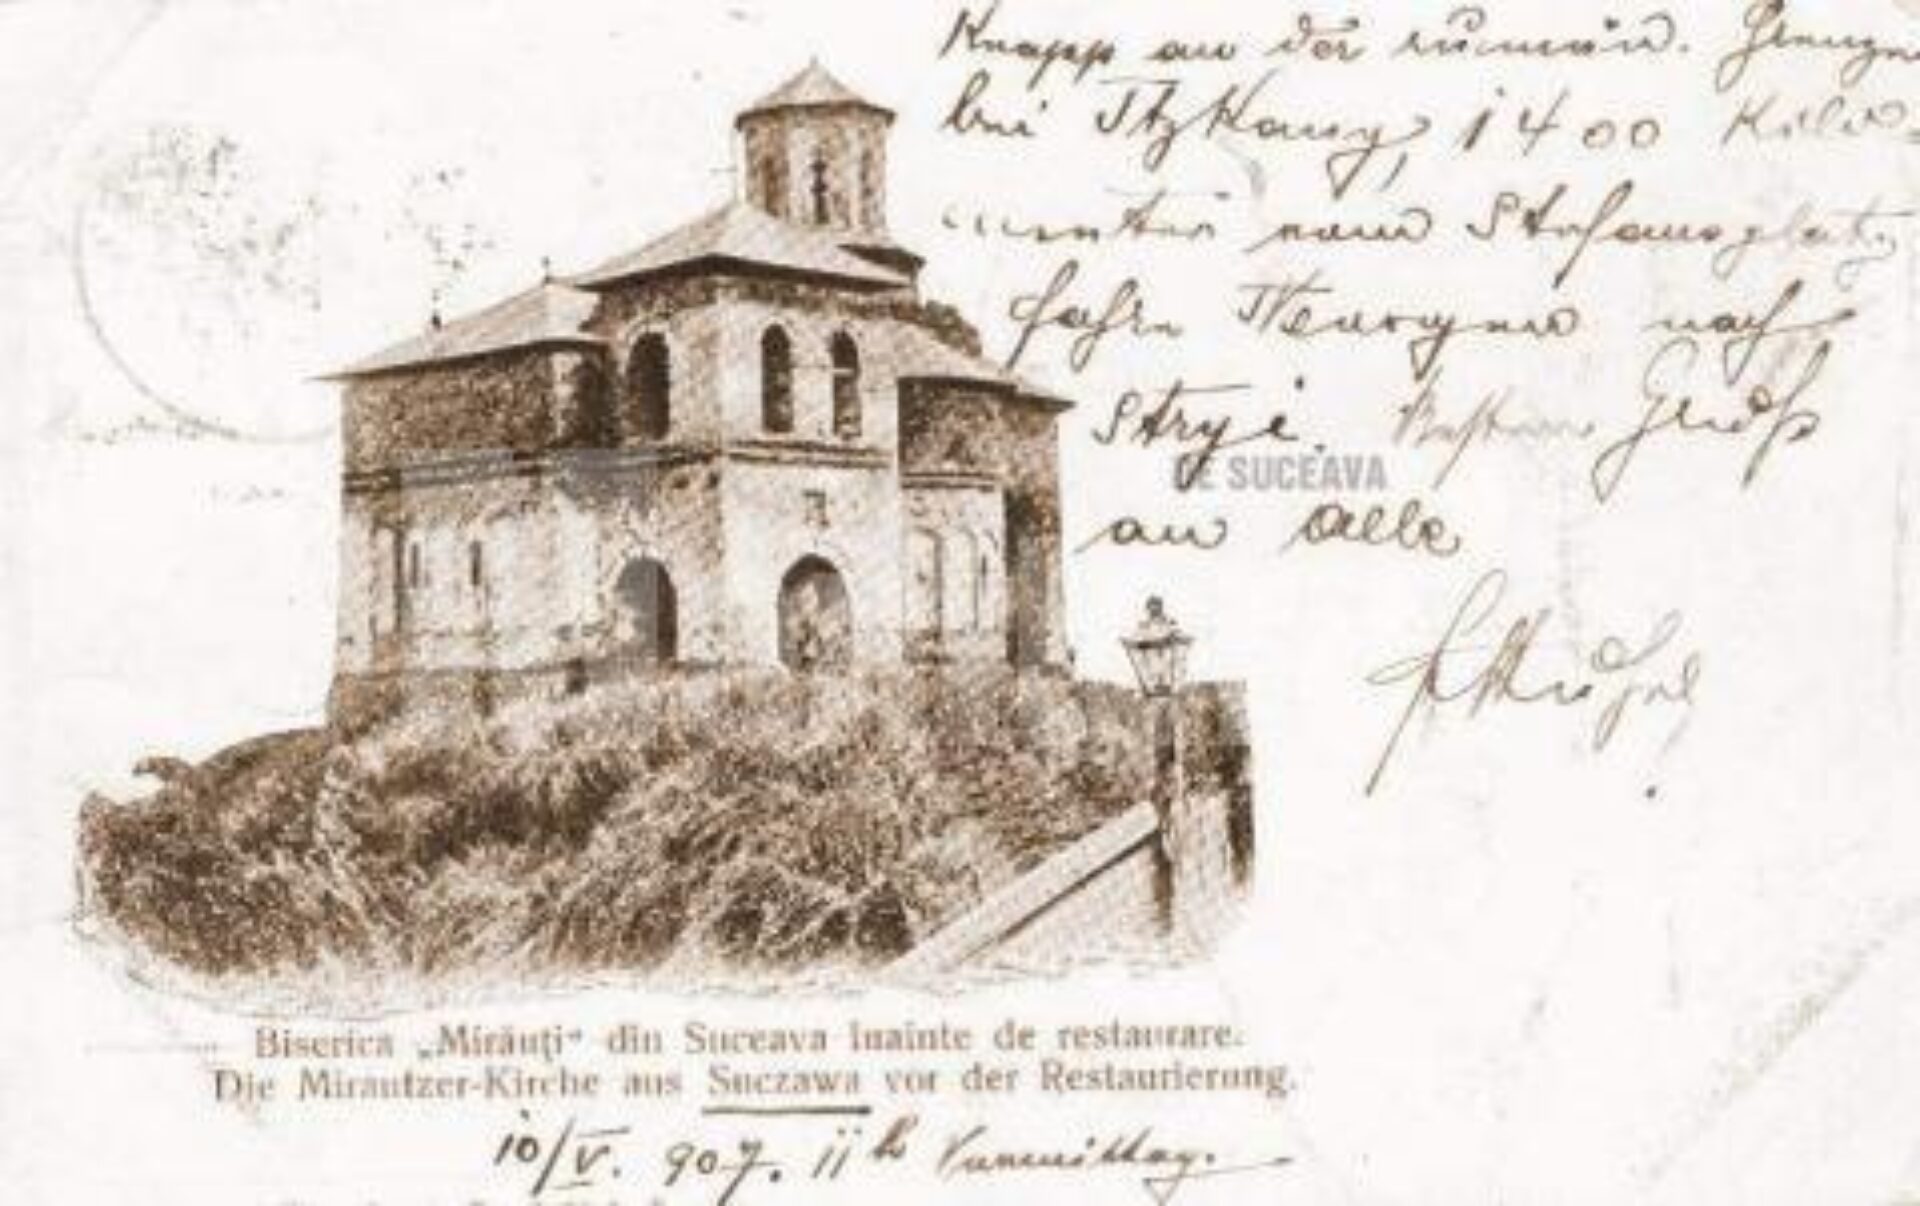 Knapp an der rumän. Grenze
bei Itzkany, 1400 Kilo-
meter vom Stefansplatz,
fahre Morgen nach
Stryi. Besten Gruß
DE SUCEAVA
an Alle
Biserica „Mirăuți“ din Suceava înainte de restaurare.
Die Mirautzer-Kirche aus Suczawa vor der Restaurierung.
10/V. 907. 11h Vormittag.